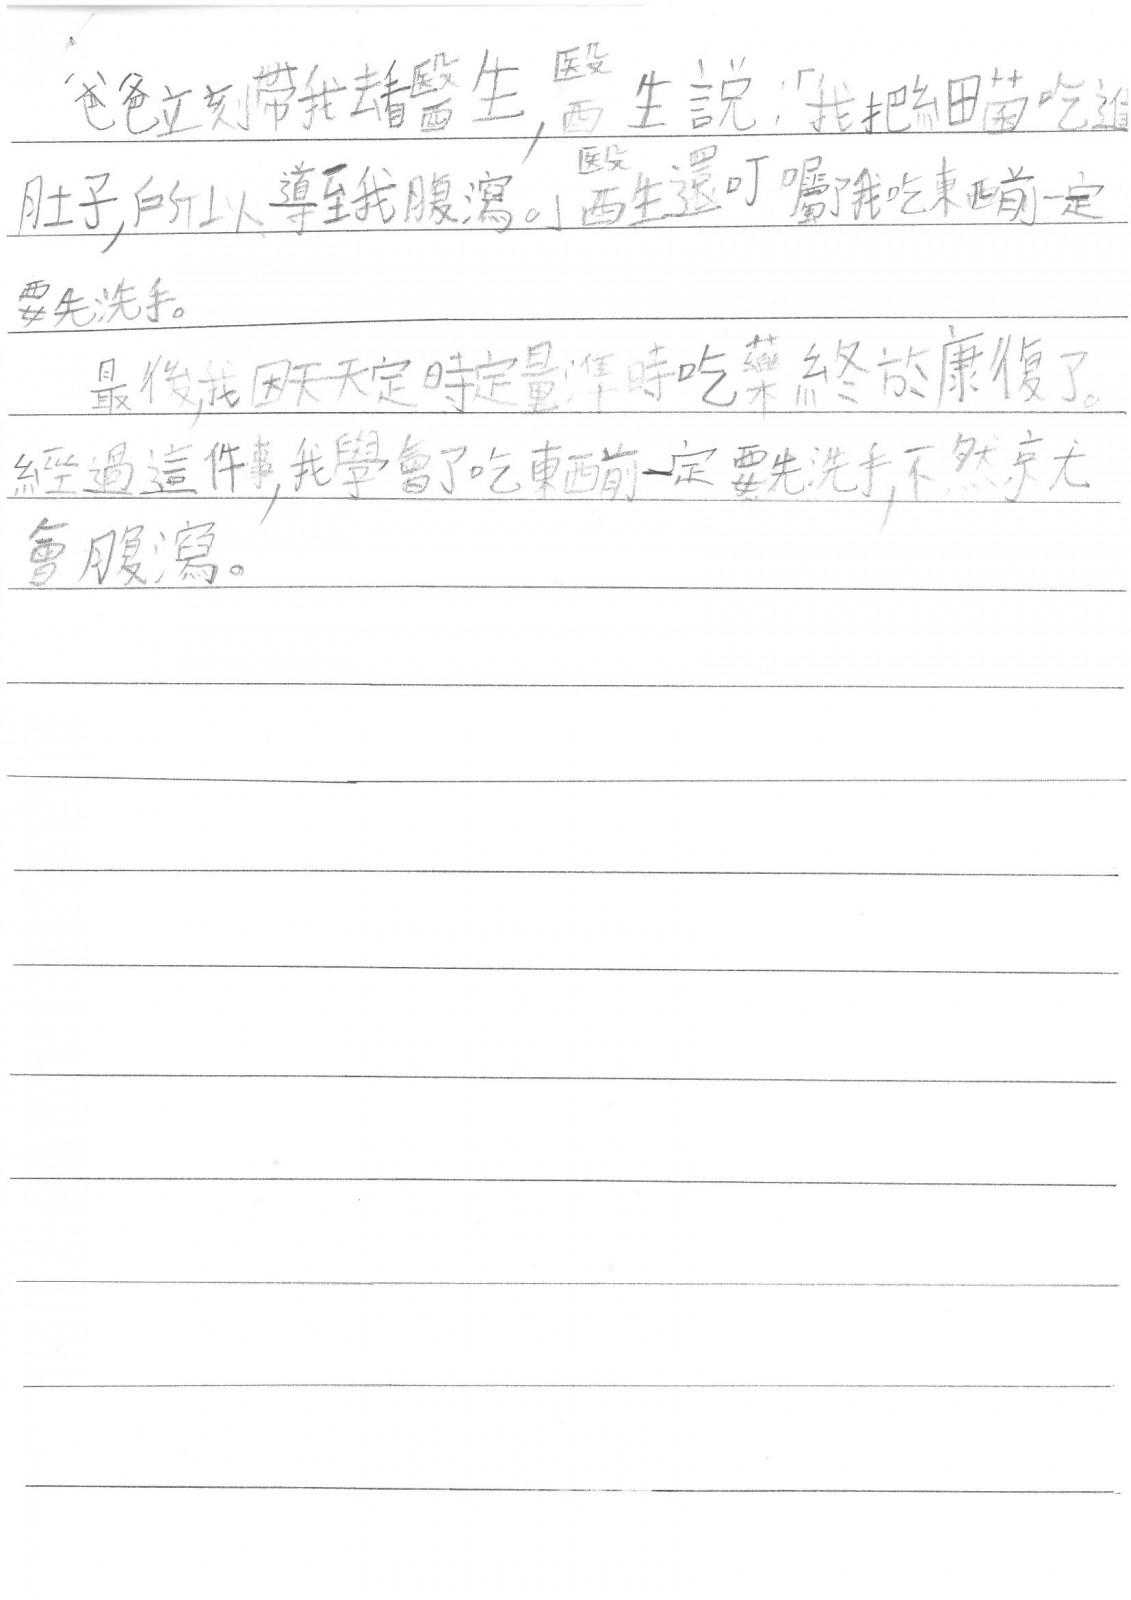 爸爸立刻帶我去看醫生,醫生說:「我把細菌吃進
肚子,所以導至我腹瀉。」醫生還叮囑我吃東西前一定
要先洗手。
最後,我因天天定時定量準時吃藥終於康復了。
經過這件事,我學會了吃東西前一定要先洗手,不然就
會腹瀉。